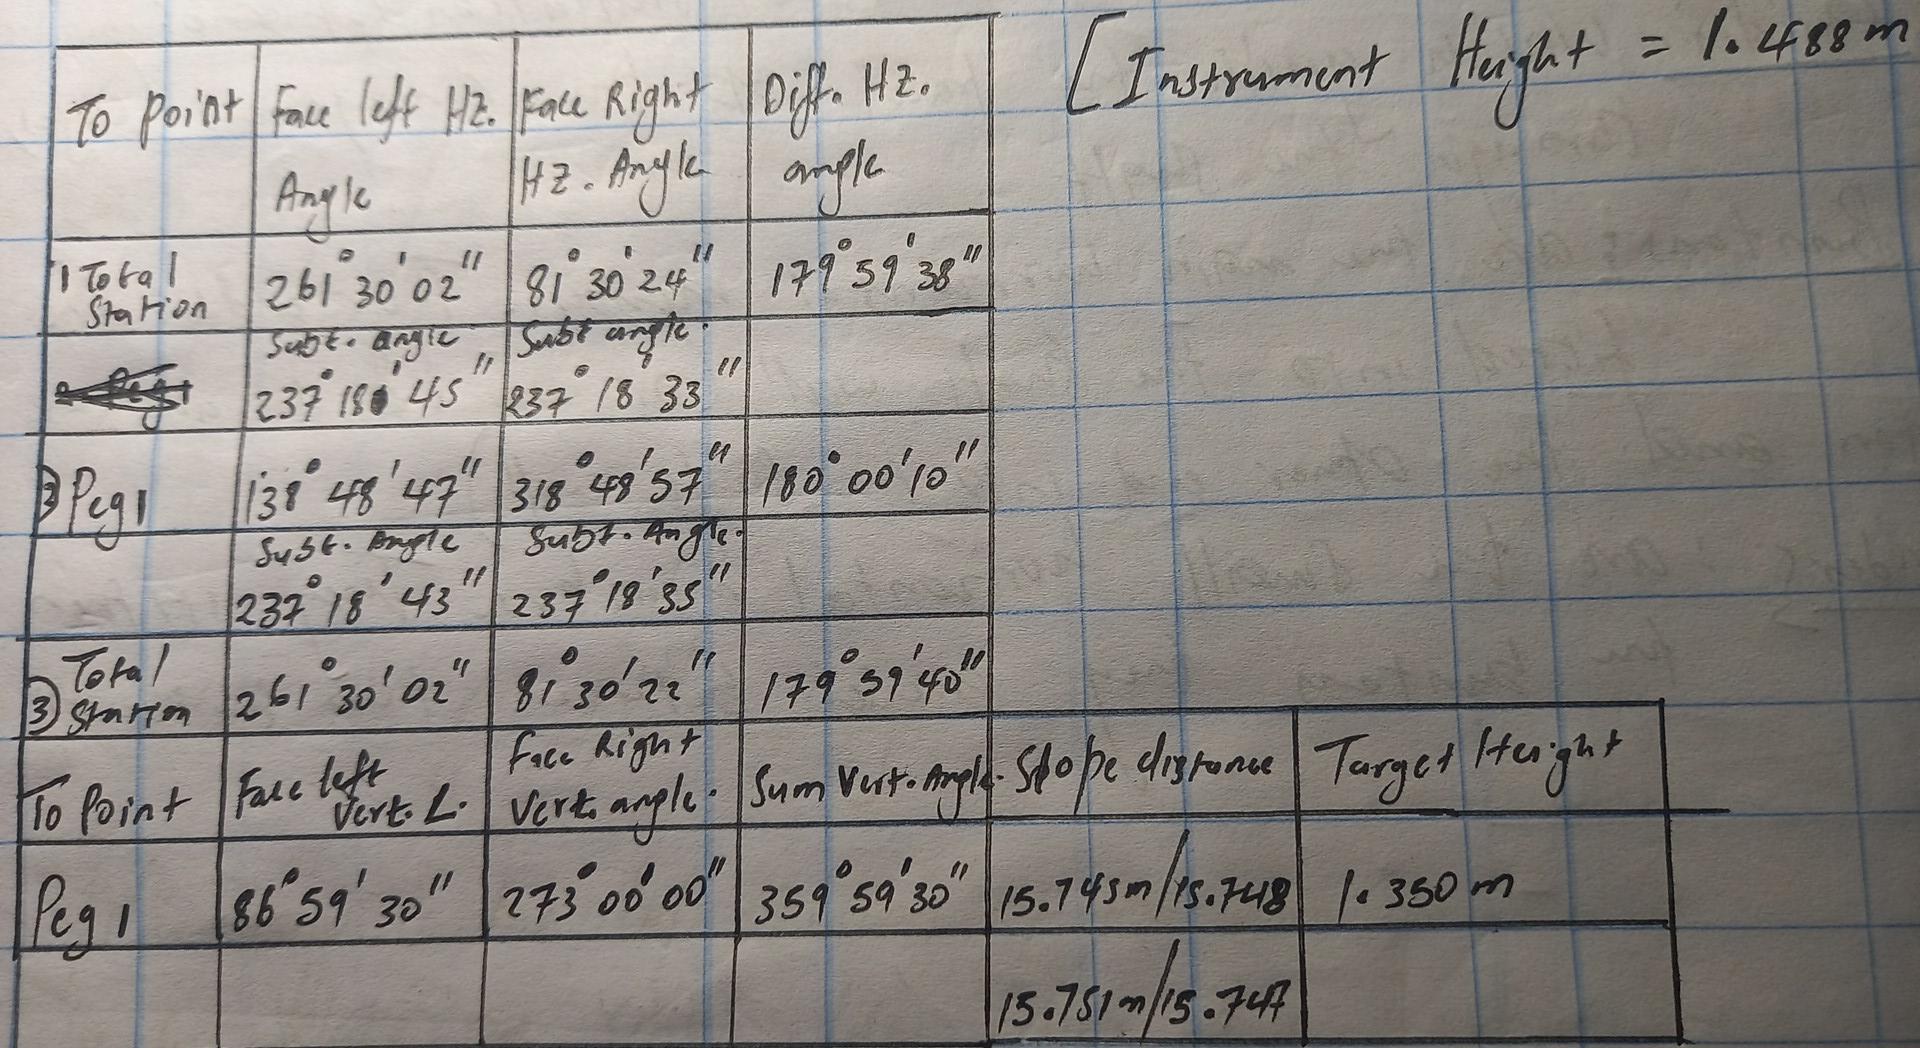 [Instrument Height = 1.488m
To Point Face left HZ. Angle Face Right HZ. Angle Diff. HZ. angle
1 Total Station 261° 30' 02" 81° 30' 24" 179° 59' 38"
Subt. angle Subt angle.
237° 18' 45" 237° 18' 33"
2) Peg 1 138° 48' 47" 318° 48' 57" 180° 00' 10"
Subt. Angle Subt. Angle.
237° 18' 43" 237° 18' 35"
③ Total Station 261° 30' 02" 81° 30' 22" 179° 59' 40"
To Point Face left Vert. L. Face Right Vert. angle. Sum Vert. Angle. Slope distance Target Height
Peg 1 86° 59' 30" 273° 00' 00" 359° 59' 30" 15.745m/15.748 1.350 m
15.751m/15.747